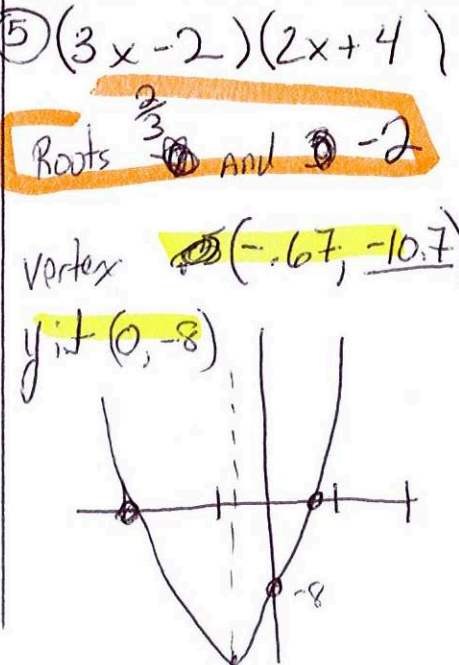 ⑤ (3x-2)(2x+4)
Roots 2/3 and -2
vertex (-.67, -10.7)
y int (0, -8)
-8